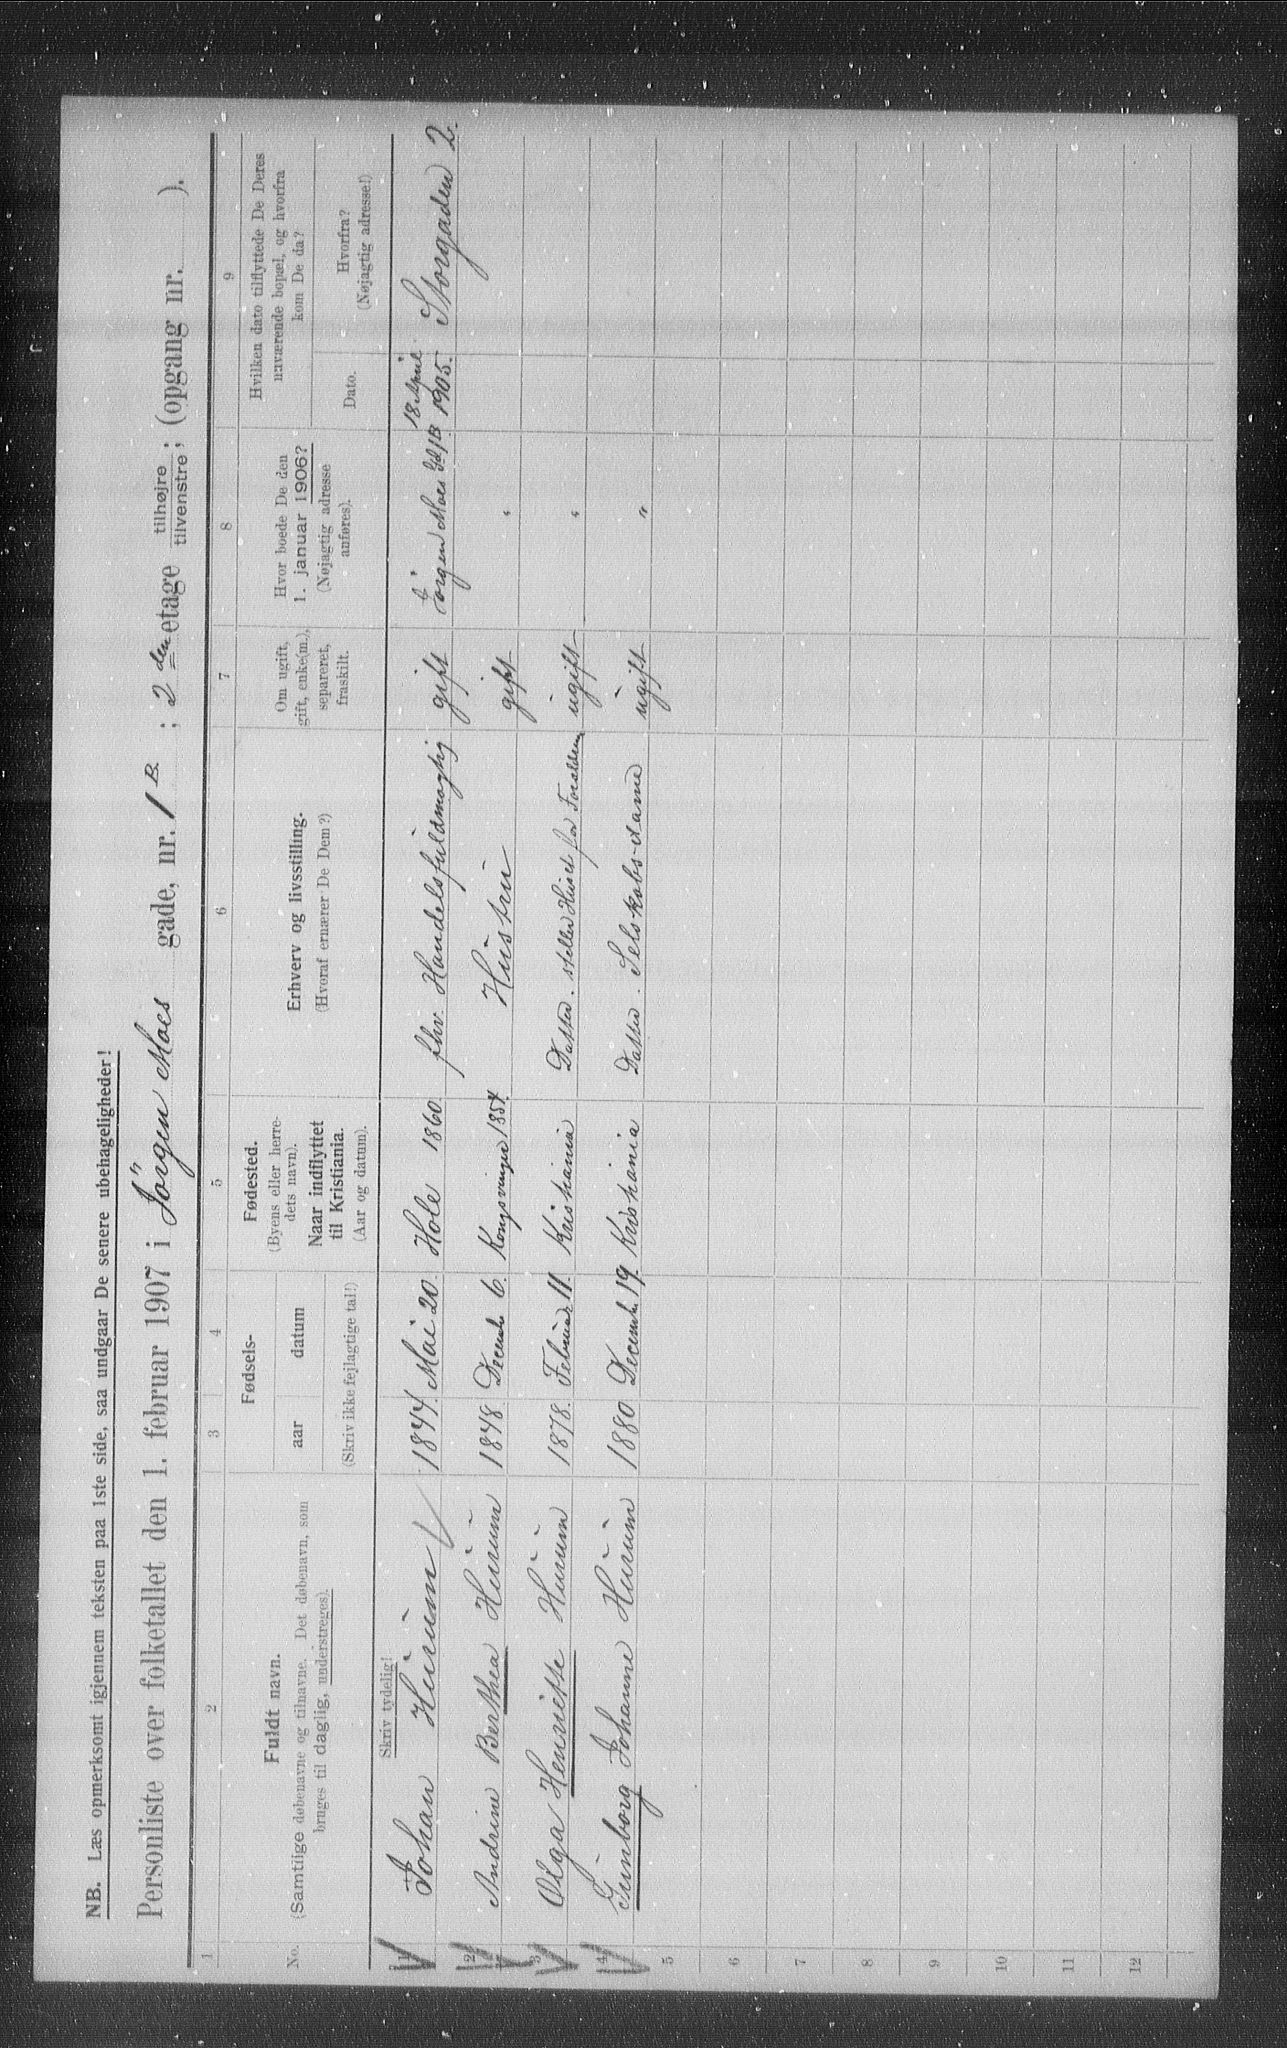 NB. Læs opmerksomt igjennem teksten paa 1ste side, saa undgaar De senere ubehageligheder!
Personliste over folketallet den 1. februar 1907 i Jörgen Moes gade, nr. 1 B. ; 2 den etage tilhøjre tilvenstre; (opgang nr. ).
1 2 3 4 5 6 7 8 9
No.
Fuldt navn.
(Samtlige døbenavne og tilnavne. Det døbenavn, som
bruges til daglig, understreges).
Fødsels-
aar datum
(Skriv ikke fejlagtige tal!)
Fødested.
(Byens eller herre-
dets navn).
Naar indflyttet
til Kristiania.
(Aar og datum).
Erhverv og livsstilling.
(Hvoraf ernærer De Dem?)
Om ugift,
gift, enke(m.),
separeret,
fraskilt.
Hvor boede De den
1. januar 1906?
(Nøjagtig adresse
anføres).
Hvilken dato tilflyttede De Deres
nuværende bopæl, og hvorfra
kom De da?
Dato.
Hvorfra?
(Nøjagtig adresse!)
Skriv tydelig!
1 Johan Hurum 1844. Mai 20. Hole 1860. fhv. Handelsfuldmægtig gift Jörgen Moes Gd 1B 18 April 1905. Storgaden 2.
2 Andrine Berthea Hurum 1848 Decemb. 6. Kongsvinger 1854. Hustru gift "
3 Olga Henriette Hurum 1878. Februar 11. Kristiania Datter. steller Huset for Forældrene ugift "
4 Gunborg Johanne Hurum 1880 Decemb. 19. Kristiania Datter. Selskabs-dame ugift "
5
6
7
8
9
10
11
12